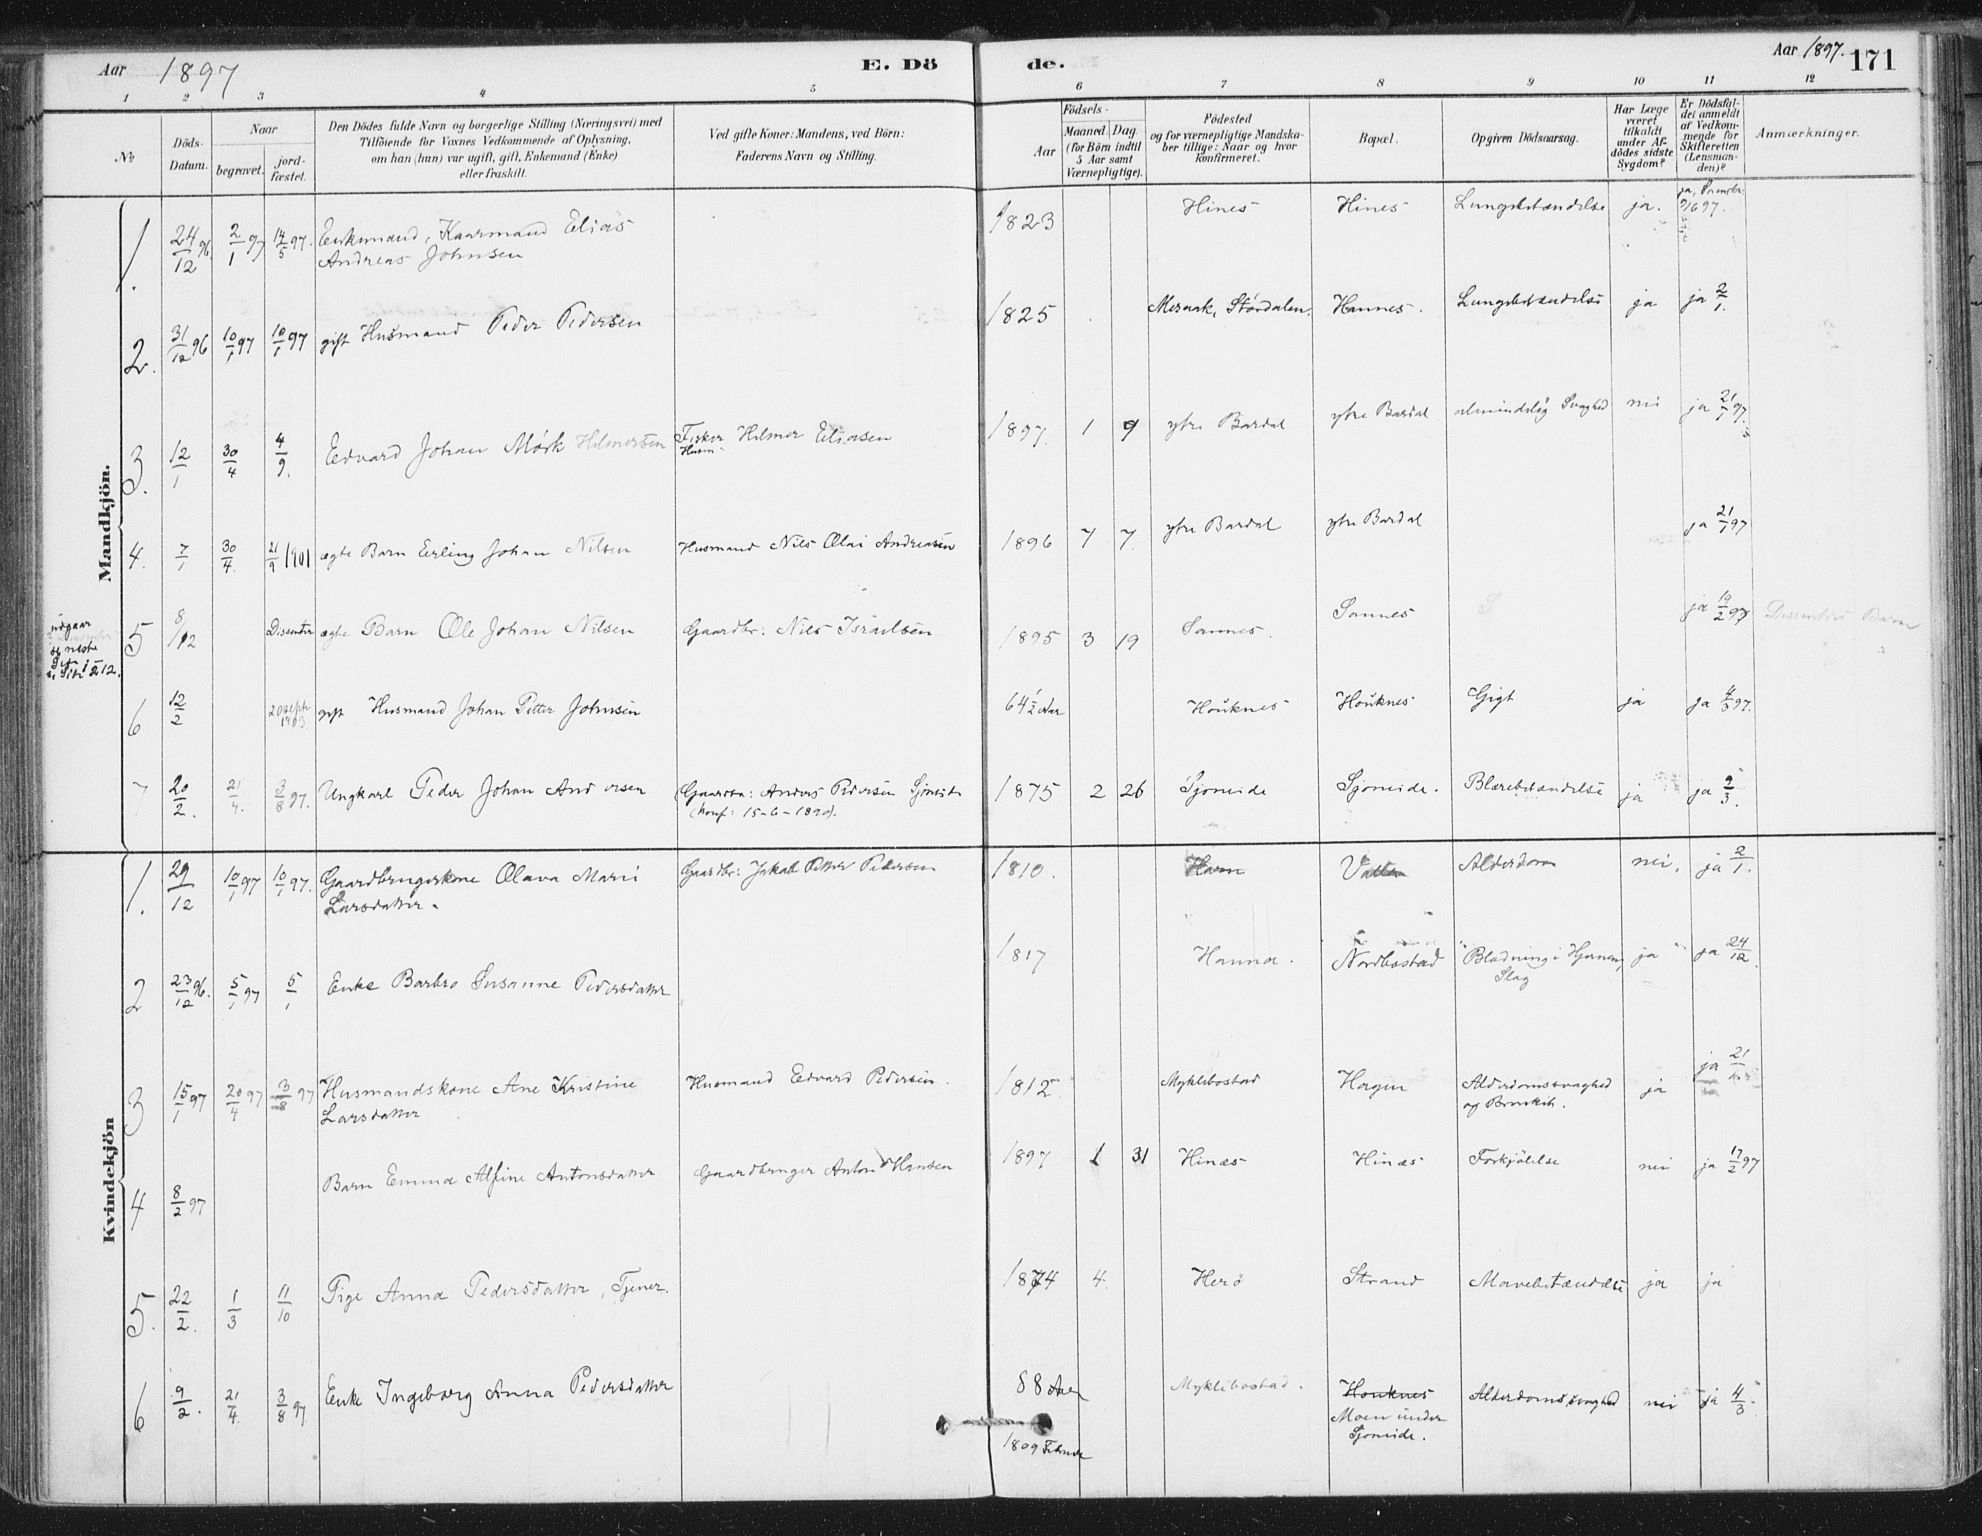 Aar 1897
E. Dö
de.
Aar 1897.
171
1 2 3 4 5 6 7 8 9 10 11 12
No
Döds-Datum.
Naar
begravet.
jord-fæstet.
Den Dödes fulde Navn og borgerlige Stilling (Næringsvei) med
Tilföiende for Voxnes Vedkommende af Oplysning,
om han (hun) var ugift, gift, Enkemand (Enke)
eller fraskilt.
Ved gifte Koner: Mandens, ved Börn:
Faderens Navn og Stilling.
Födsels-
Aar
Maaned. Dag.
(for Börn indtil
5 Aar samt
Værnepligtige).
Födested
og for værnepligtige Mandska-
ber tillige: Naar og hvor
konfirmeret.
Bopæl.
Opgiven Dödsaarsag.
Har Læge
været
tilkaldt
under Af-
dödes sidste
Sygdom?
Er Dödsfal-
det anmeldt
af Vedkom-
mende for
Skifteretten
(Lensman-
den)?
Anmærkninger.
Mandkjön.
1. 24/12 96 2/1 97 14/5 97. Enkemand, Kaarmand Elias 1823 Hines Hines Lungebetændelse ja. ja,
Andreas Johnsen
2. 31/12 96 10/1 97 10/1 97 gift Husmand Peder Pedersen 1825 Meraak, Stördalen. Hannes. Lungebetændelse ja ja 2/1.
3. 12/1 30/4 4/9. Edvard Johan Mörk Hilmersen Fisker Hilmer Eliasen 1897. 1 9 ytre Bardal ytre Bardal almindelig Svaghed nei ja 21/1 97.
Husm.
4. 7/1 30/4. 21/9 1901 ægte Barn Erling Johan Nilsen Husmand Nils Olai Andreasen 1896 7 7. ytre Bardal ytre Bardal ja 21/1 97
udgaar
se næste
5 8/12 Dissenter ægte Barn Ole Johan Nilsen Gaardbr: Nils Israelsen 1895 3 19 Sannes. Sannes ja 19/2 97 Dissenters Barn
6 12/2 20 septr 1903 gift Husmand Johan Petter Johnsen 64 1/2 Aar Houknes Houknes Gigt ja ja 4/3 97.
7 20/2. 21/4. 3/8 97. Ungkarl Peder Johan Andersen Gaardbr: Anders Pedersen Sjoneide 1875 2 26 Sjoneide Sjoneide. Blærebetændelse ja ja 2/3.
(Konf: 15-6-1890).
Kvindekjön
1. 29/12 10/1 97 10/1 97. Gaardbrugerskone Olava Marie Gaardbr: Jakob Petter Pedersen 1810. Alderdom nei. ja 2/1.
Larsdatter.
2 23/12 96. 5/1 97 5/1 Enke Barbro Susanne Pedersdatter 1817 Hanna. Nordbostad Blødning i Hjernen, ja ja 24/12.
Slag
3 15/1 97 20/4 97 3/8 97 Husmandskone Ane Kristine Husmand Edvard Pedersen. 1812 Myklibostad Hagen Alderdomssvaghed ja ja 21
Larsdatter og Bronkit.
4 8/2 97 Barn Emma Alfine Antonsdatter Gaardbruger Anton Hansen 1897 1 31 Hinæs Hinæs Forkjölelse nei ja 17/2 97
5. 22/2. 1/3 11/10 Pige Anna Pedersdatter, Tjener. 1874 4. Herö Strand Mavebetændelse ja ja
6 9/2. 21/4. 3/8 97. Enke Ingeborg Anna Pedersdatter 88 Aar Myklibostad. Houknes Alderdomssvaghed nei ja 4/3.
Moen under
Sjoneide.
1809 Februar